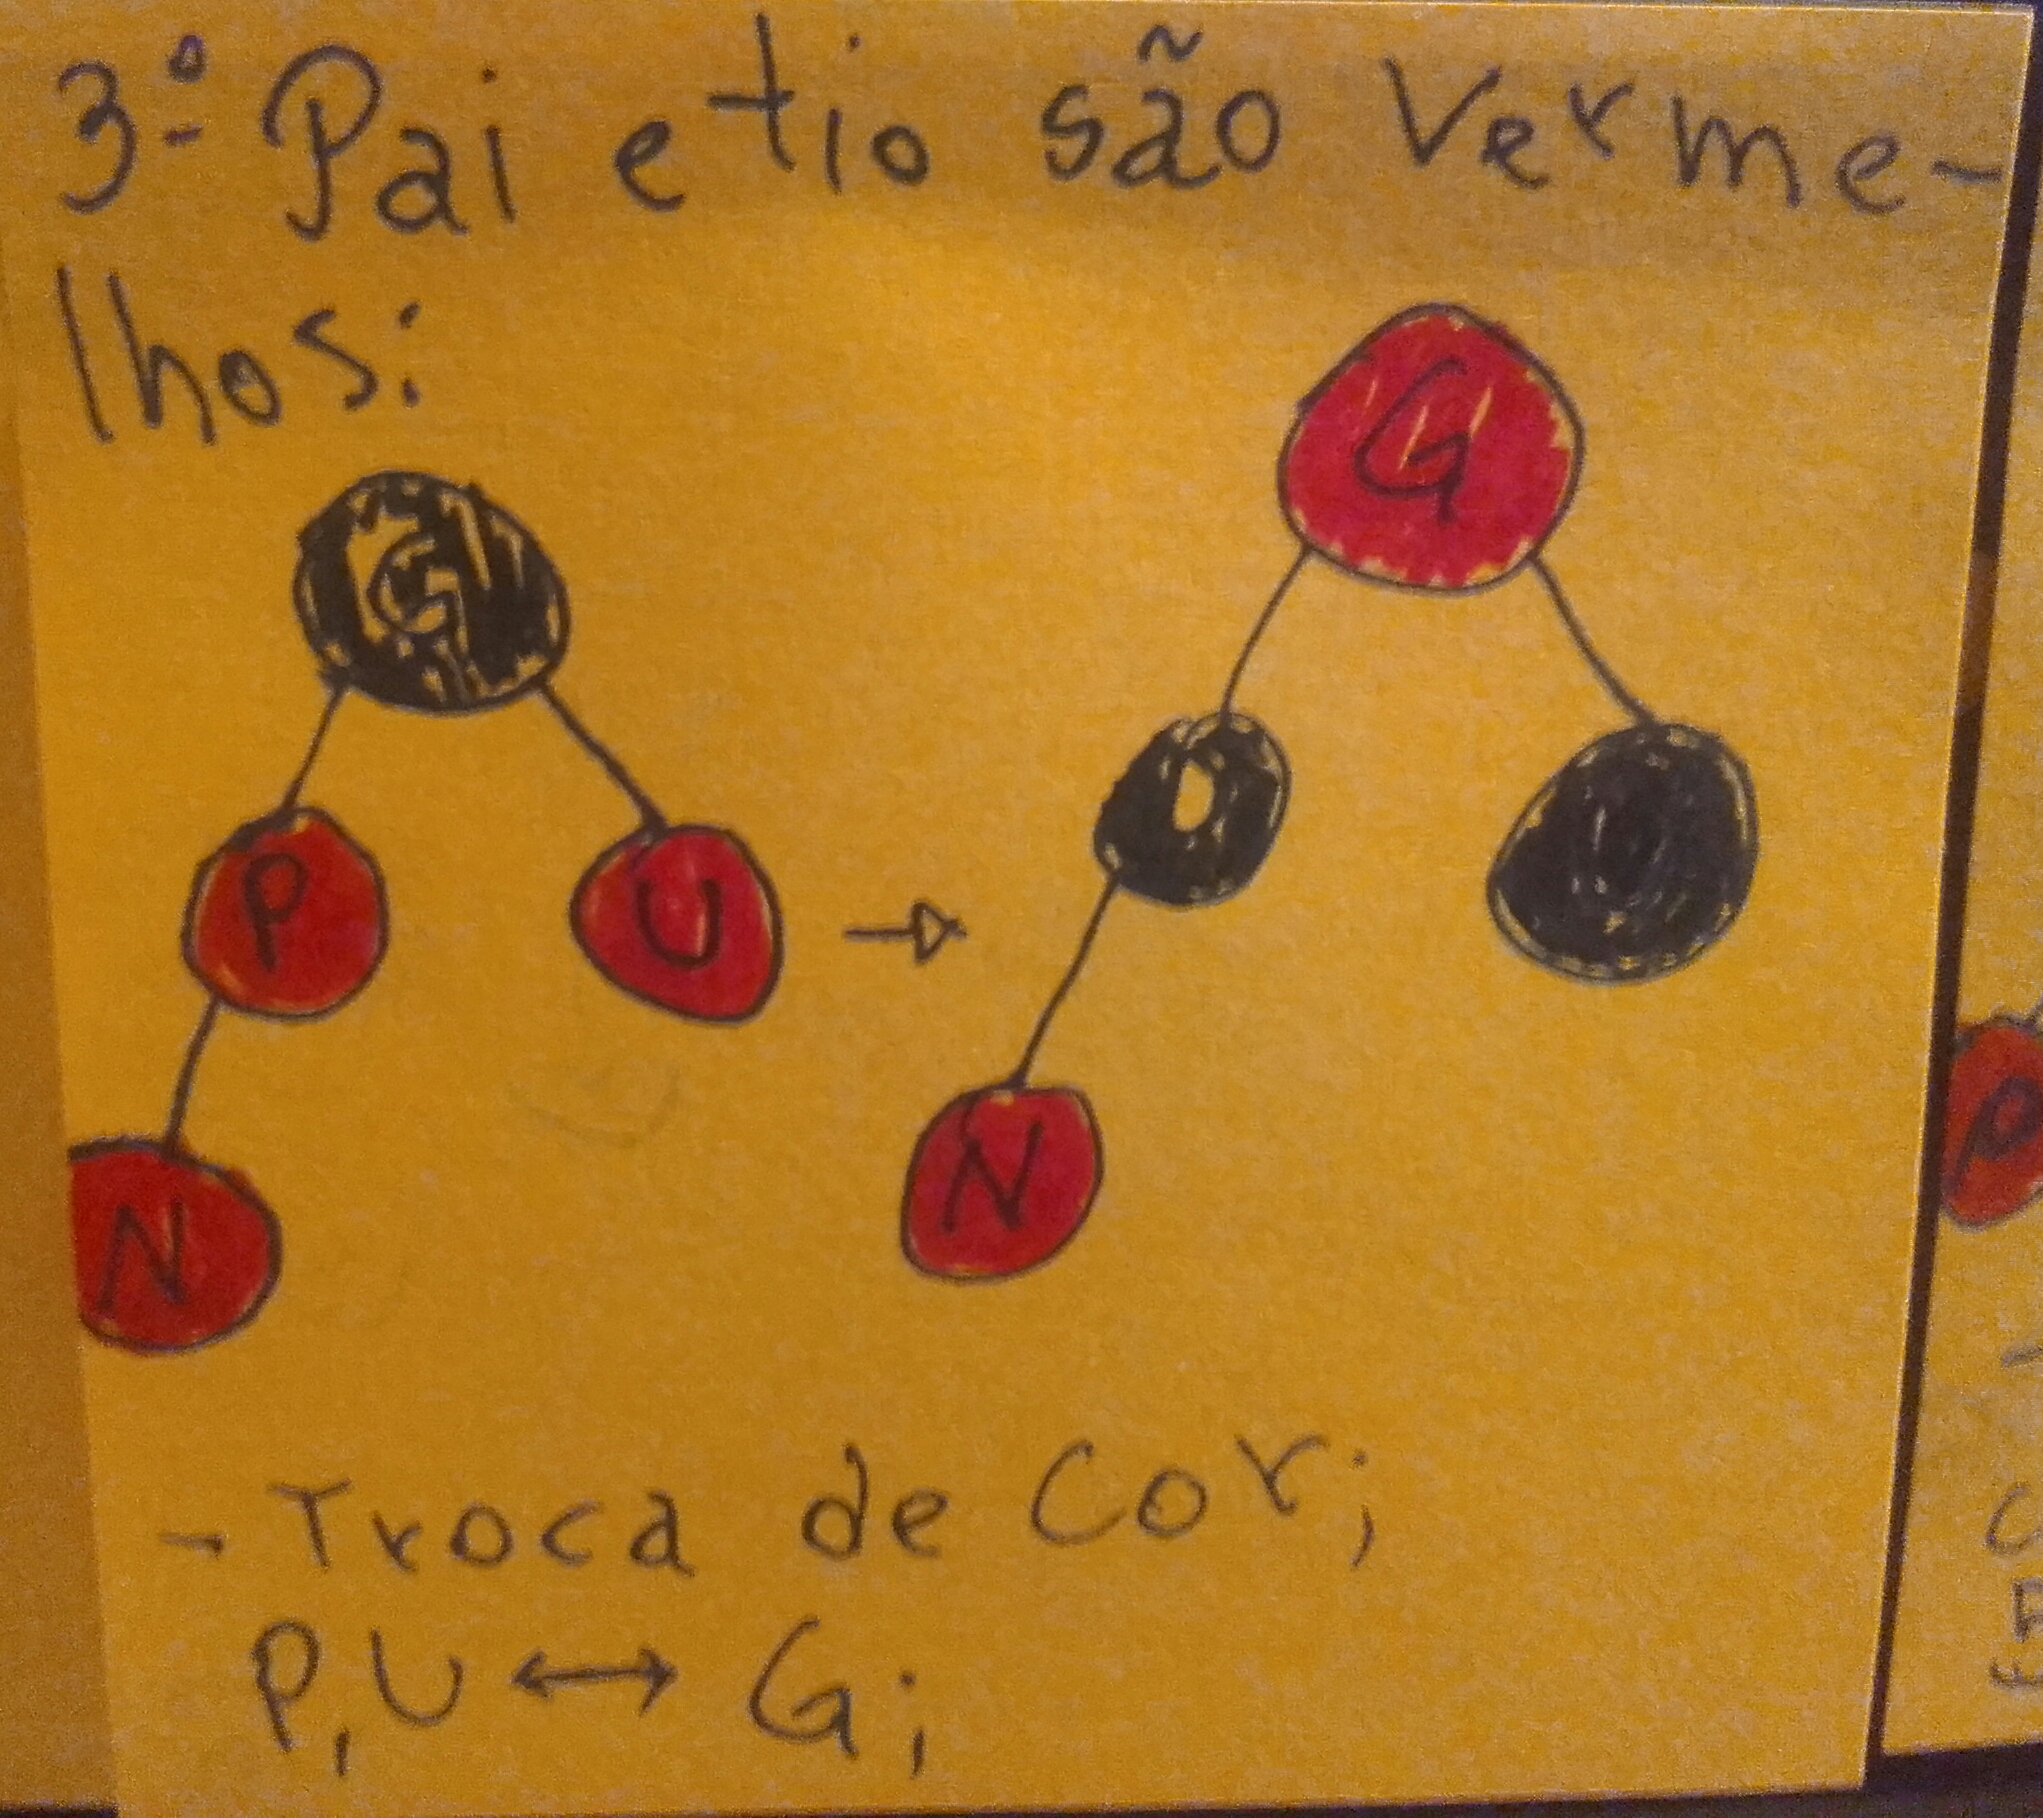 3º Pai e tio são Verme-
lhos:
G
G
P
U
→
N
N
P
- Troca de Cor;
P, U ↔ G;